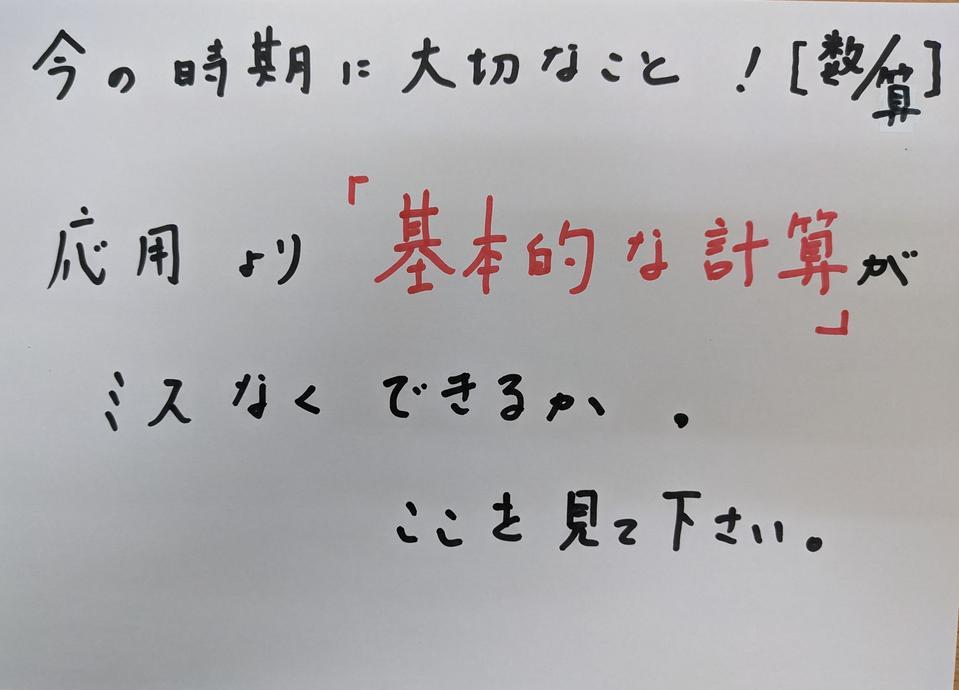 今の時期に大切なこと！[数/算]
応用より「基本的な計算」が
ミスなくできるか。
ここを見て下さい。